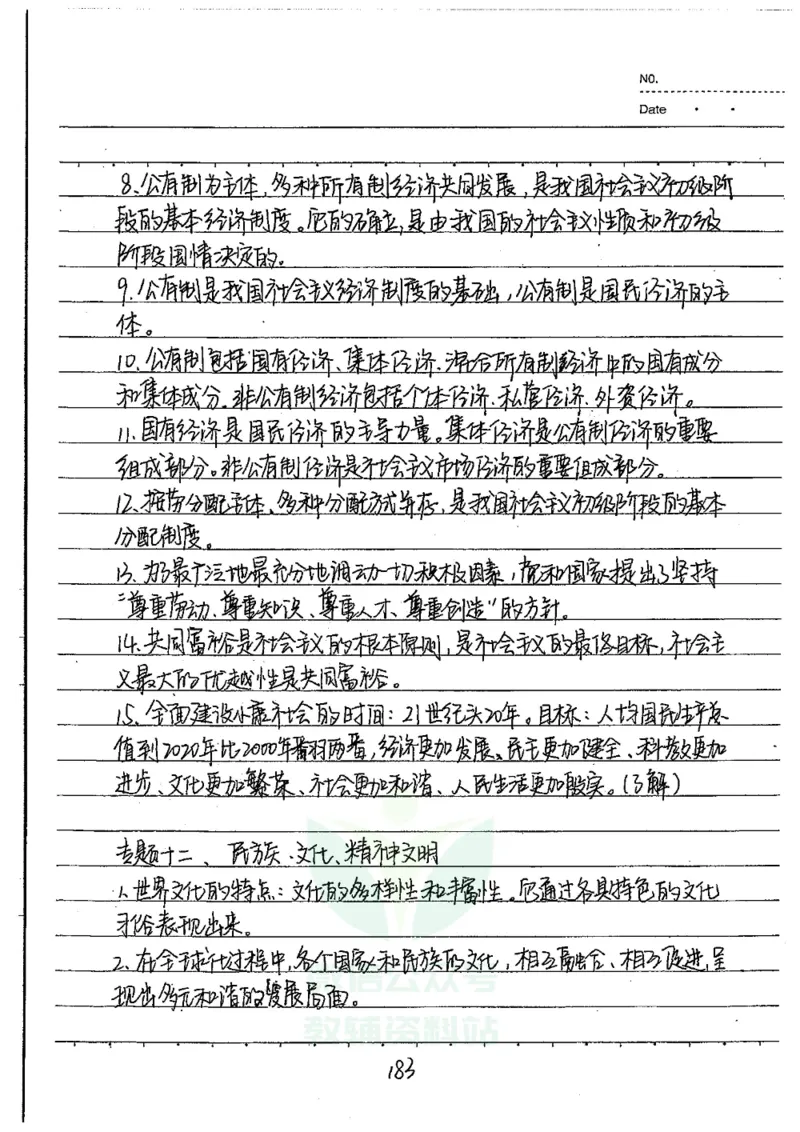 NO.
Date
8、公有制为主体，多种所有制经济共同发展，是我国社会主义初级阶
段的基本经济制度。它的确立，是由我国的社会主义性质和初级
阶段国情决定的。
9、公有制是我国社会主义经济制度的基础，公有制是国民经济的主
体。
10、公有制包括国有经济、集体经济、混合所有制经济中的国有成分
和集体成分。非公有制经济包括个体经济、私营经济、外资经济。
11、国有经济是国民经济的主导力量。集体经济是公有制经济的重要
组成部分。非公有制经济是社会主义市场经济的重要组成部分。
12、按劳分配主体、多种分配方式并存，是我国社会主义初级阶段的基本
分配制度。
13、为了最广泛地最充分地调动一切积极因素，党和国家提出了坚持
“尊重劳动、尊重知识、尊重人才、尊重创造”的方针。
14、共同富裕是社会主义的根本原则，是社会主义的最终目标，社会主
义最大的优越性是共同富裕。
15、全面建设小康社会的时间：21世纪头20年。目标：人均国民生产总
值到2020年比2000年翻两番，经济更加发展、民主更加健全、科教更加
进步、文化更加繁荣、社会更加和谐、人民生活更加殷实。(了解)
专题十二、民族、文化、精神文明
1、世界文化的特点：文化的多样性和丰富性。它通过各具特色的文化
习俗表现出来。
2、在全球化过程中，各个国家和民族的文化，相互融合、相互促进，呈
现出多元和谐的发展局面。
微信公众号
教辅资料站
183